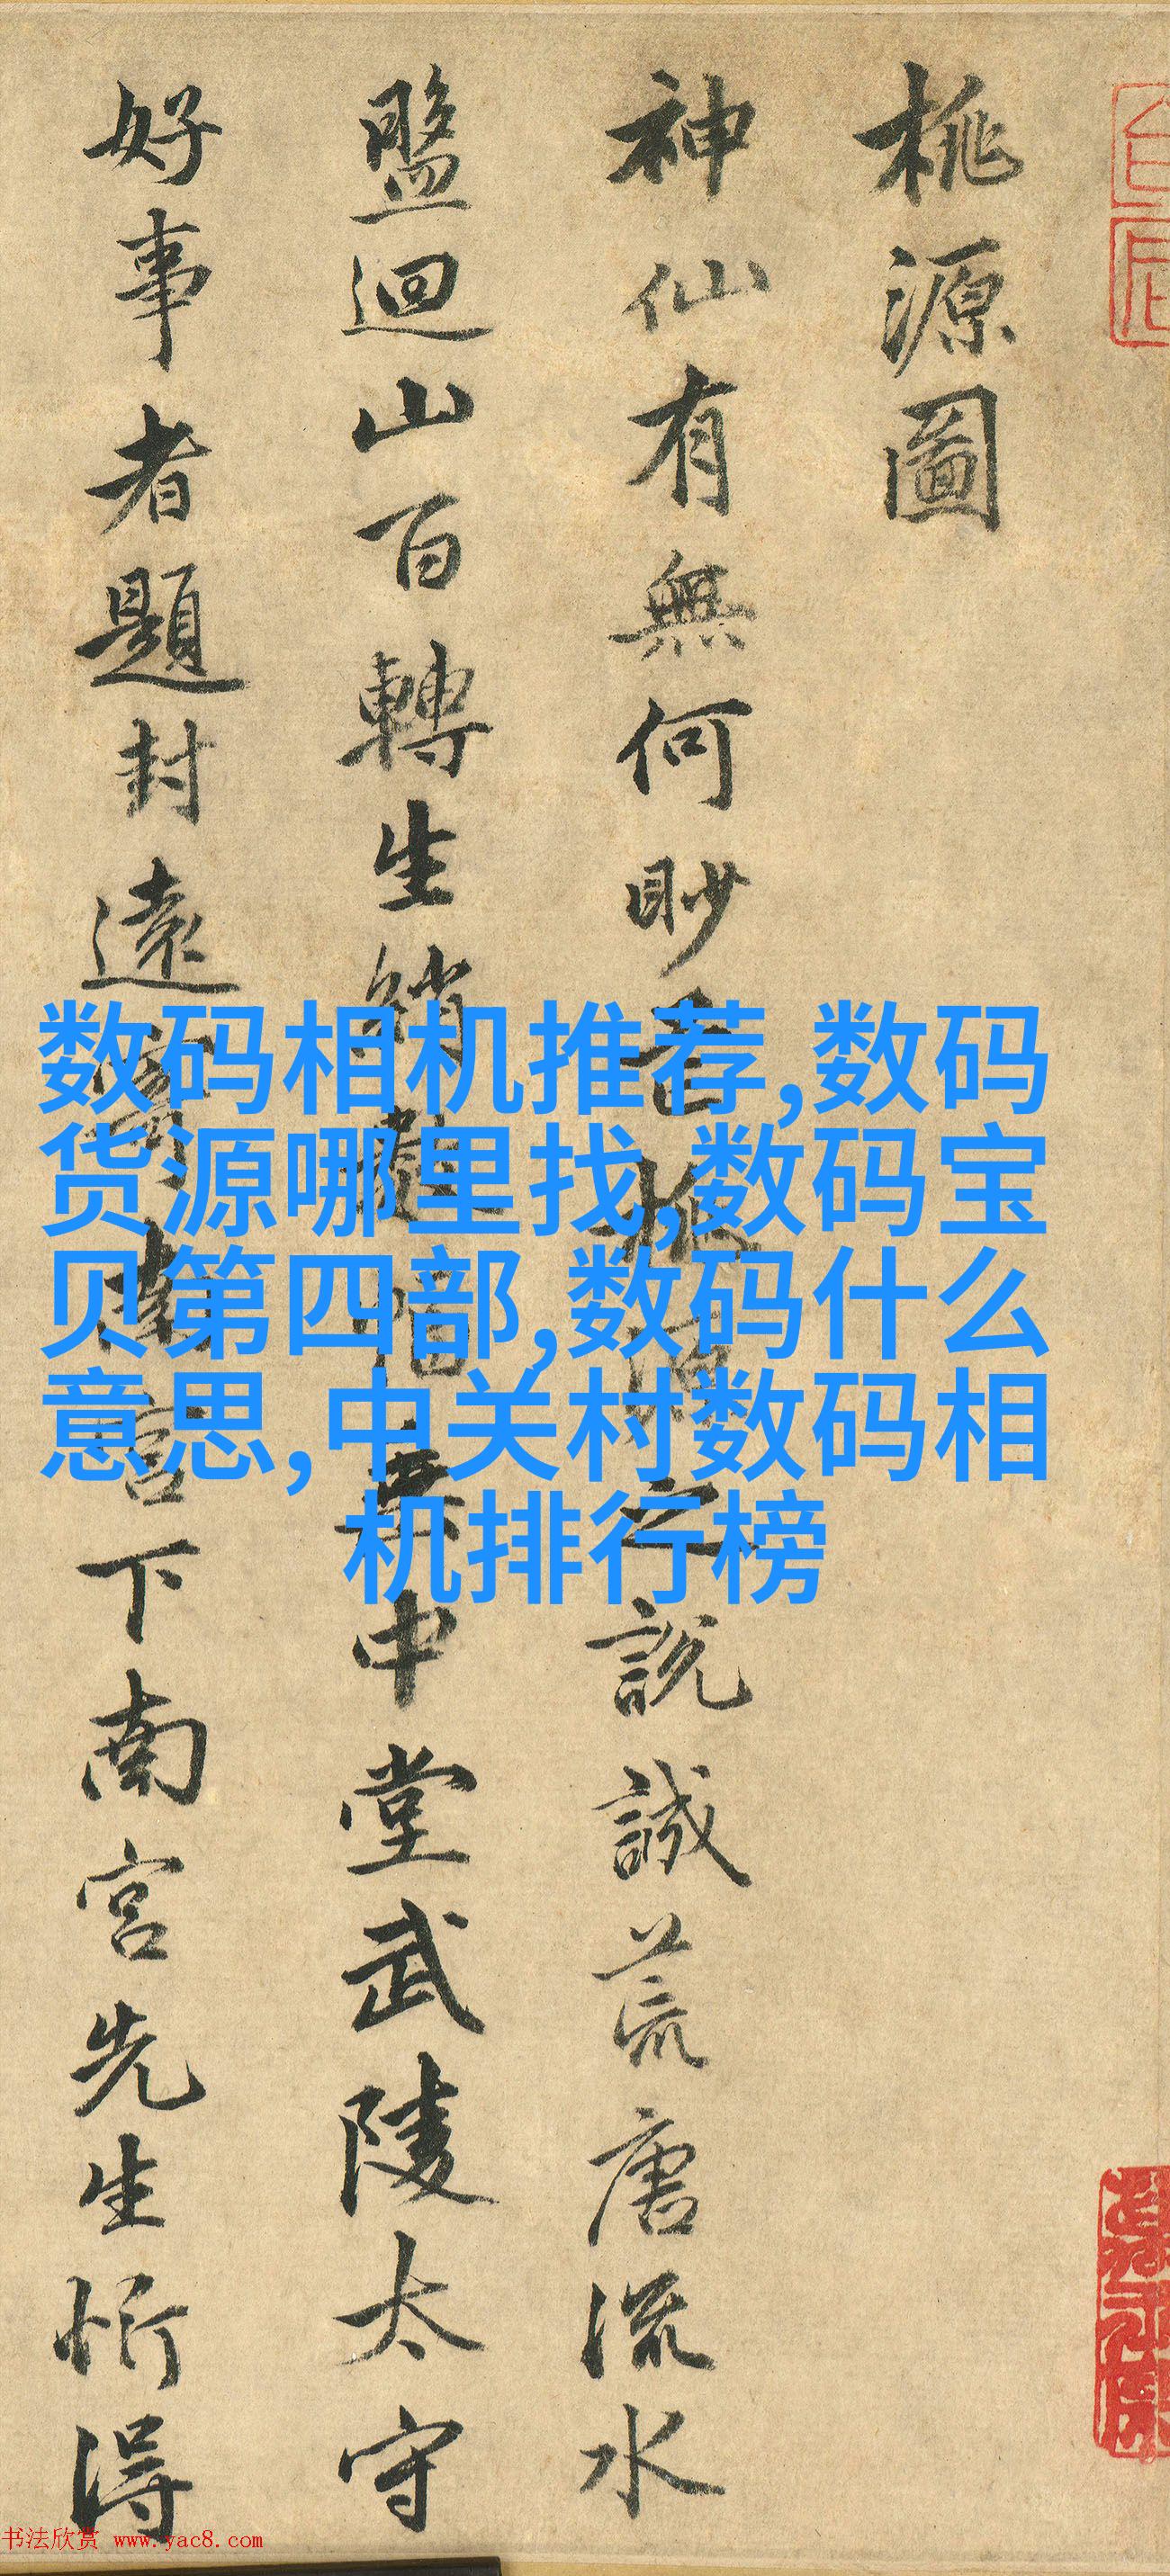 桃源圖
神仙有無何眇芒桃源之說誠荒唐流水
盤迴山百轉生綃數幅垂中堂武陵太守
好事者題封遠寄南宮下南宮先生忻得
数码相机推荐,数码
货源哪里找,数码宝
贝第四部,数码什么
意思,中关村数码相
机排行榜
书法欣赏 www.yac8.com